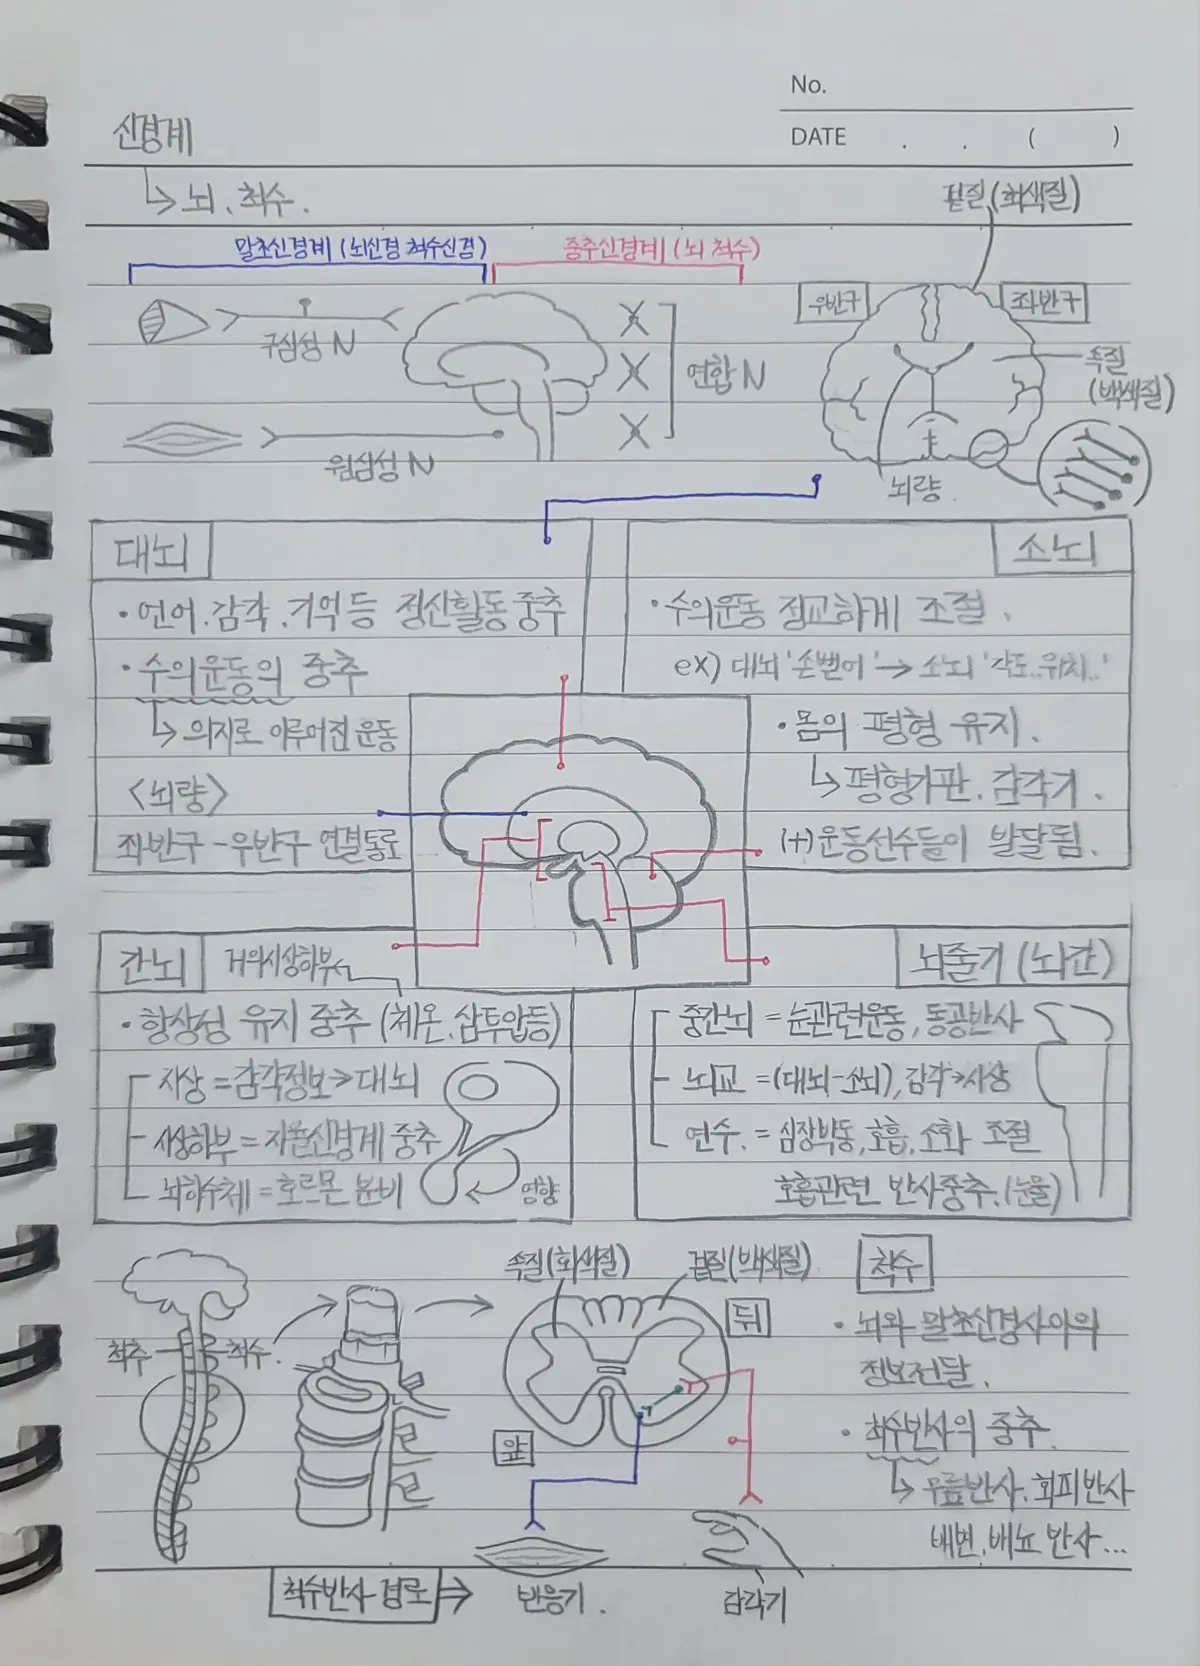 No.
DATE . . ( )
신경계
↳ 뇌, 척수.
겉질(회색질)
말초신경계 (뇌신경 척수신경)
중추신경계 (뇌 척수)
우반구
좌반구
구심성 N
연합 N
속질
(백색질)
원심성 N
뇌량.
대뇌
· 언어.감각.기억 등 정신활동 중추
· 수의운동의 중추
↳ 의지로 이루어진 운동
<뇌량>
좌반구-우반구 연결통로
소뇌
· 수의운동 정교하게 조절.
ex) 대뇌 '손뻗어' → 소뇌 '각도..위치..'
· 몸의 평형 유지.
↳ 평형기관. 감각기.
(+)운동선수들이 발달됨.
간뇌
거의시상하부
· 항상성 유지 중추 (체온.삼투압등)
시상 = 감각정보→대뇌
시상하부 = 자율신경계 중추
뇌하수체 = 호르몬 분비
영향
뇌줄기 (뇌간)
중간뇌 = 눈관련운동, 동공반사
뇌교 = (대뇌-소뇌), 감각→시상
연수. = 심장박동, 호흡, 소화 조절
호흡관련 반사중추.(눈물)
속질(회색질)
겉질(백색질)
척추
척수.
뒤
앞
척수
· 뇌와 말초신경사이의
정보전달.
· 척수반사의 중추.
↳ 무릎반사. 회피반사
배변, 배뇨 반사...
척수반사 경로 ⇒
반응기.
감각기